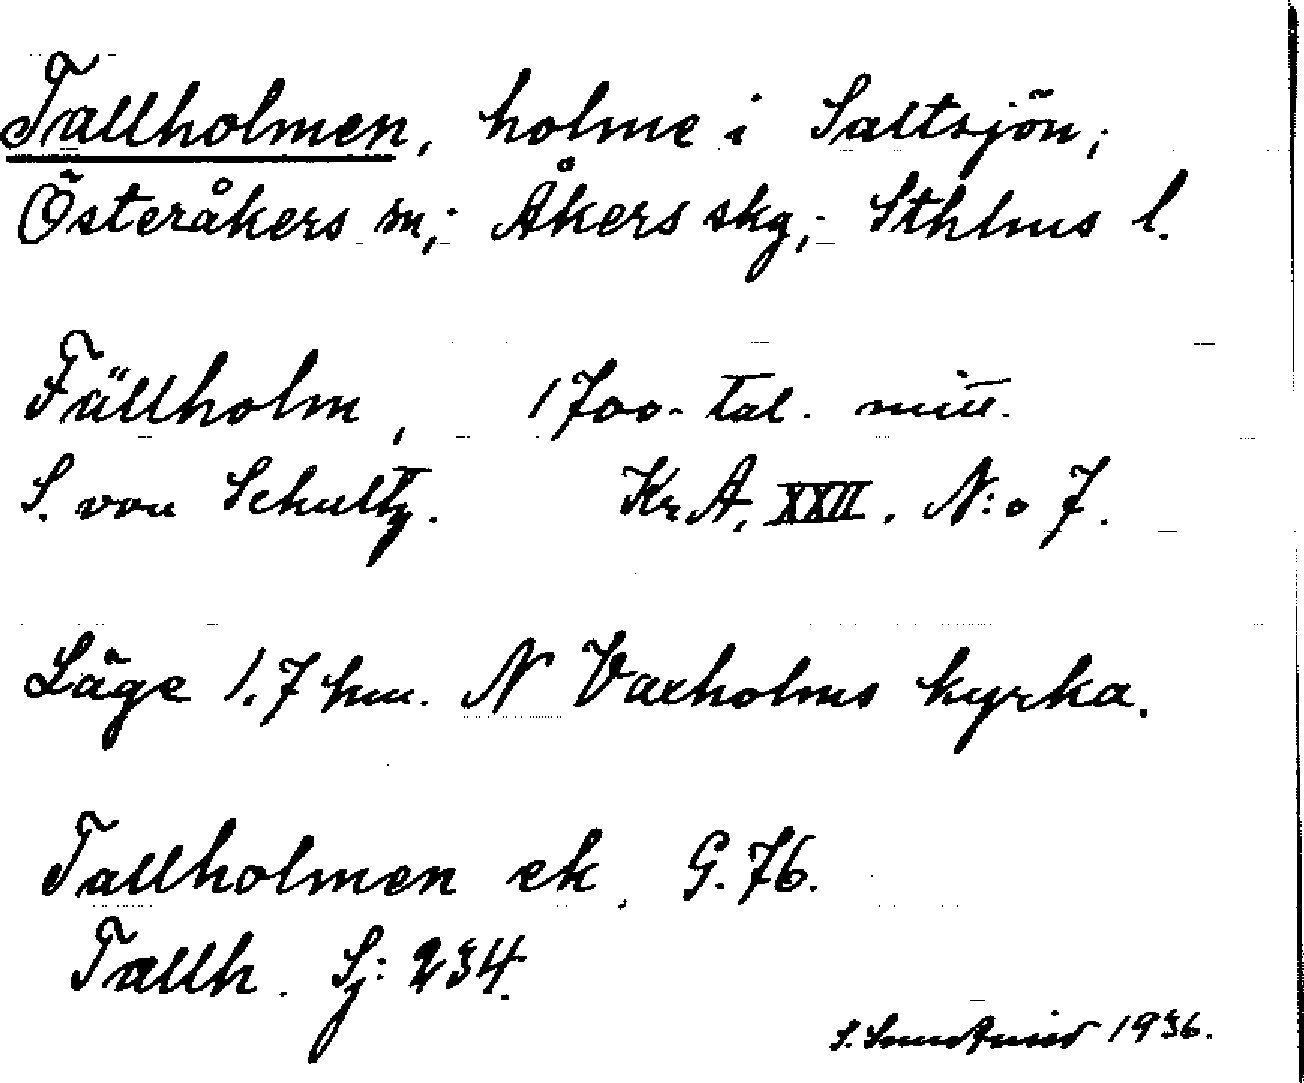 Tallholmen, holme i Saltsjön;
Österåkers sn; Åkers skg; Sthlms l.
Fällholm, 1700-tal. mitt.
S. von Schultz. Kr.A. XXII. N:o 7.
Läge 1.7 km. N Vaxholms kyrka.
Tallholmen ek. G.76.
Tallh. Sj: 234.
S. 1936.